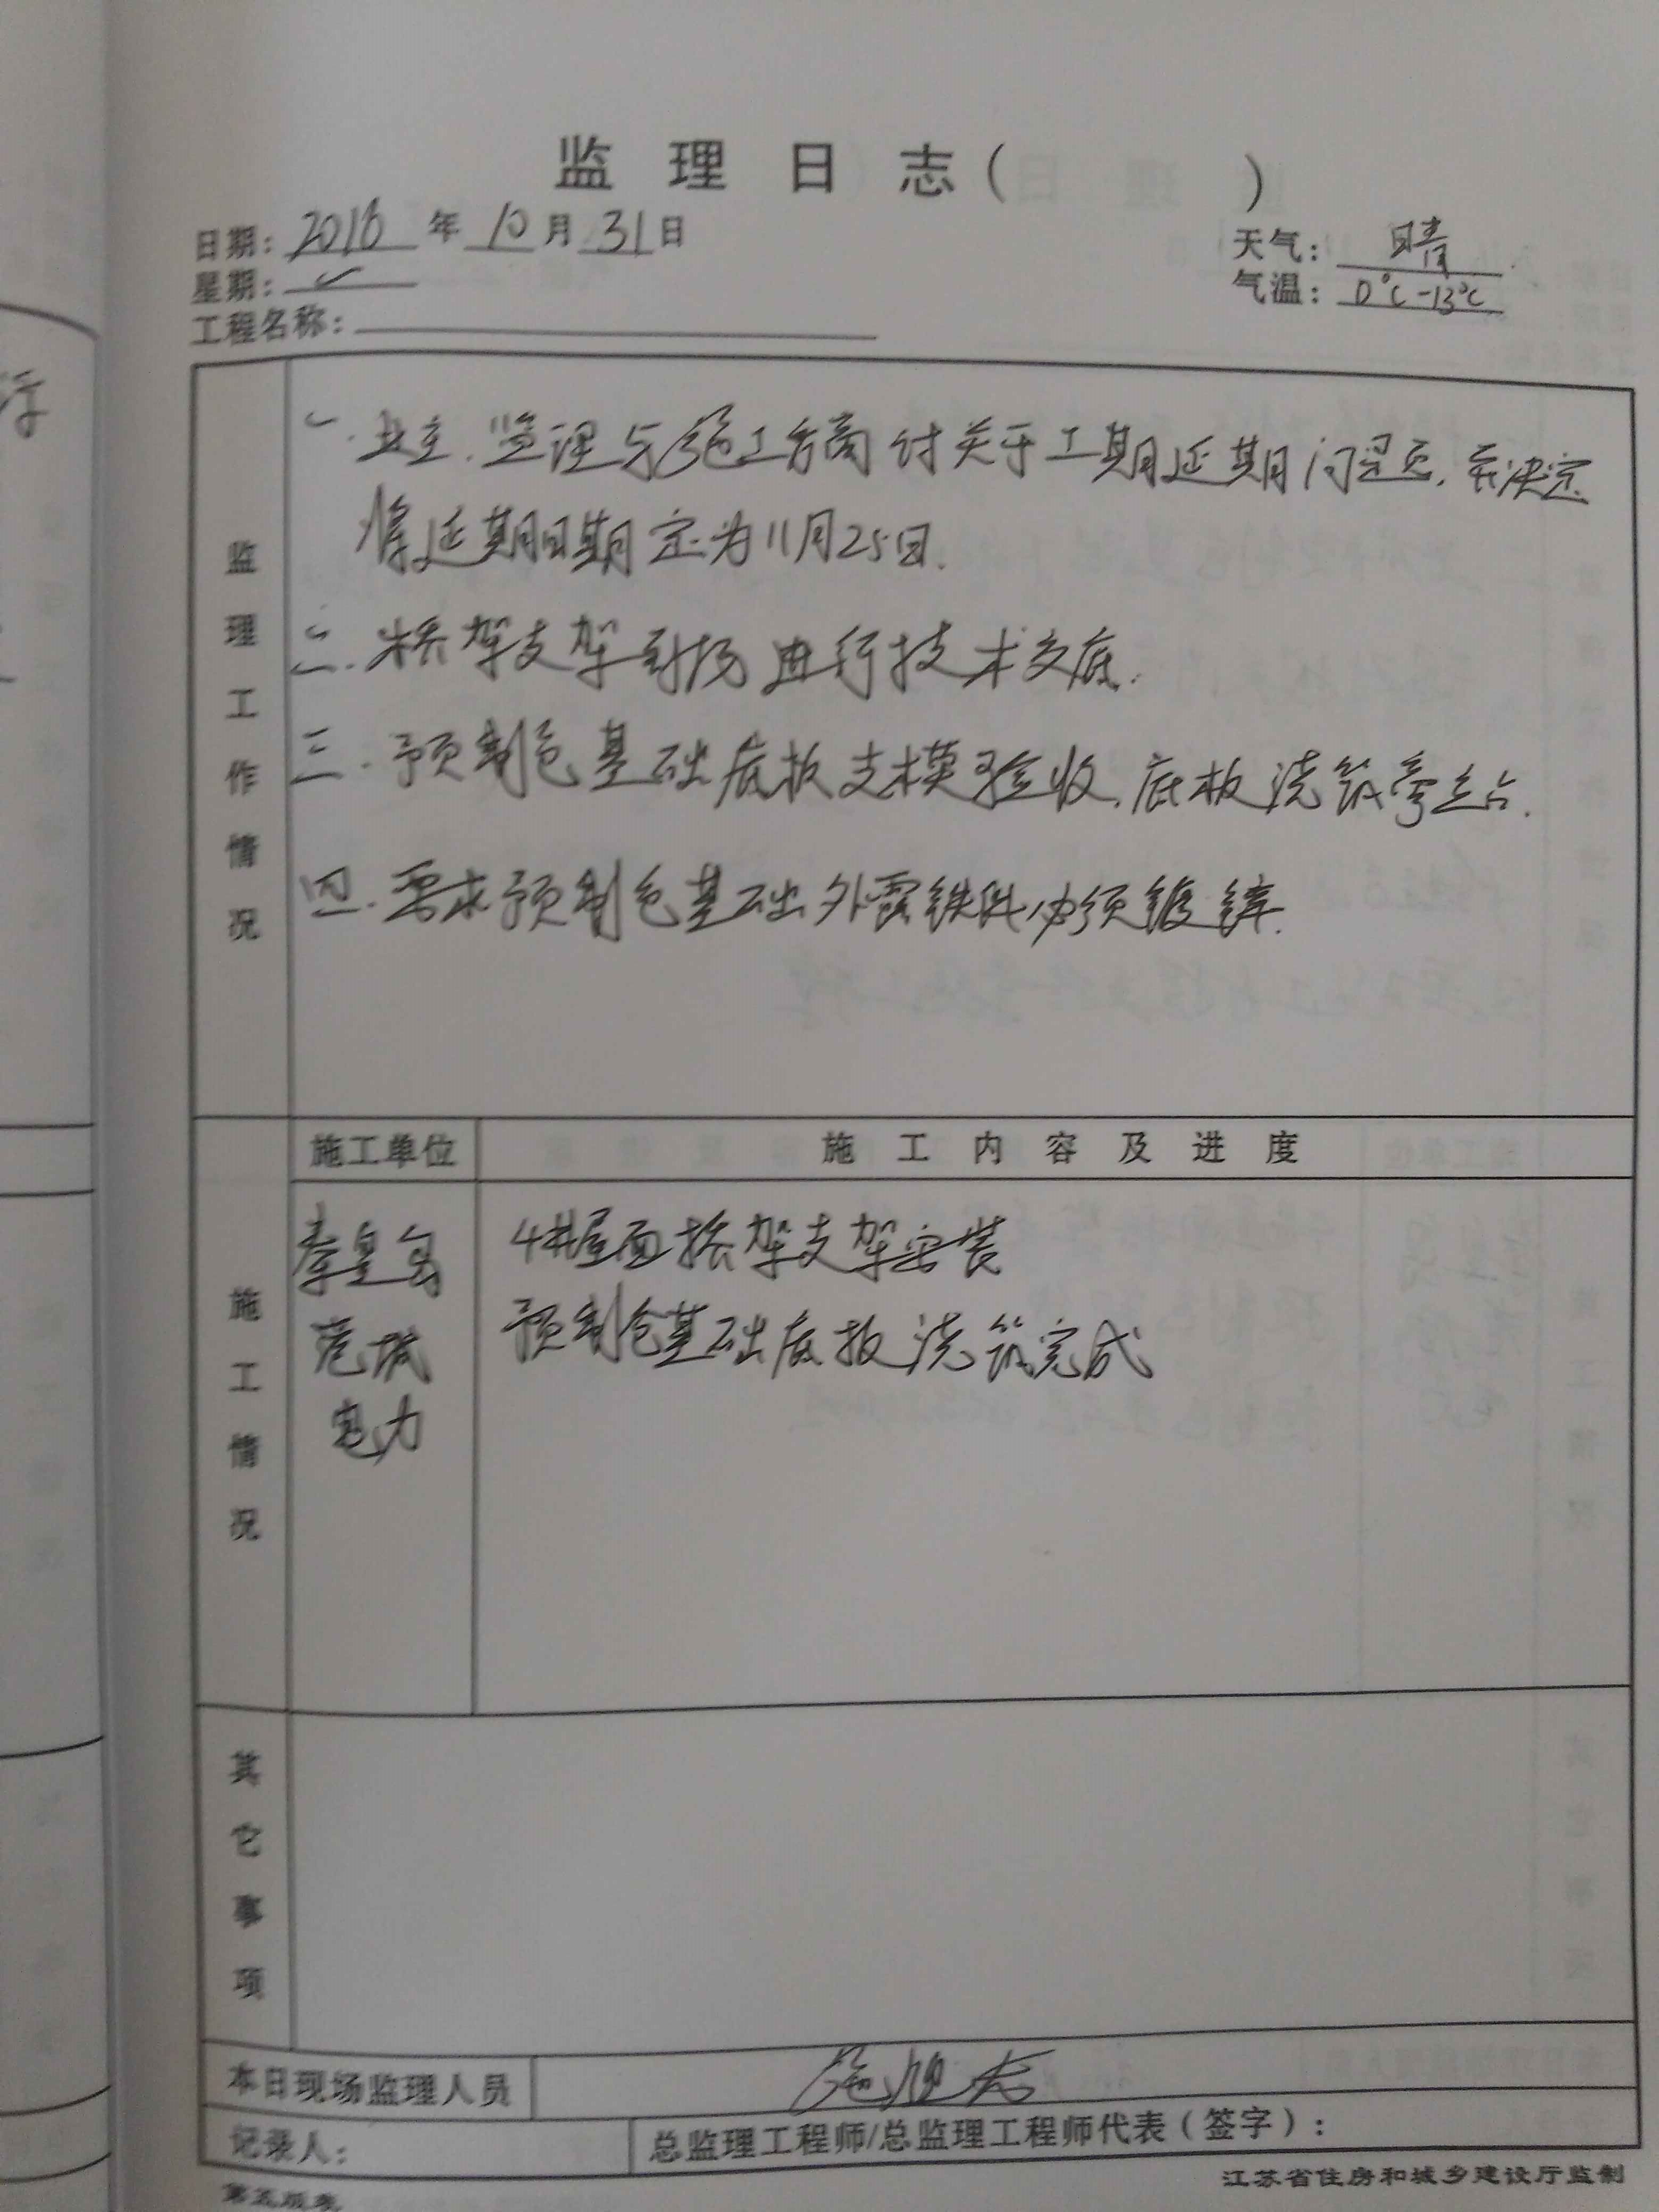 监理日志( )
日期: 2016 年 10 月 31 日
天气: 晴
星期: 一
气温: 0℃-13℃
工程名称:
监理工作情况
一.业主.监理与施工方商讨关于工期延期问题,并决定
将延期日期定为11月25日.
二.桥架支架到场进行技术交底.
三.预制仓基础底板支模验收.底板浇筑旁站.
四.要求预制仓基础外露铁件必须镀锌.
施工情况
施工单位
施工内容及进度
秦皇岛
港城
电力
4#屋面桥架支架安装
预制仓基础底板浇筑完成
其它事项
本日现场监理人员
施
记录人:
总监理工程师/总监理工程师代表(签字):
江苏省住房和城乡建设厅监制
第五版表